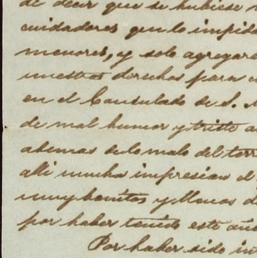 de decir que se hubiese
cuidadores que lo impid
menores, y solo agregar
nuestros derechos para
en el Consulado de S.
de mal humor y triste a
abenas de lo malo del
alli mucha impresion el
muy bonitos y llenos de
por haber tenido este año
Por haber sido in